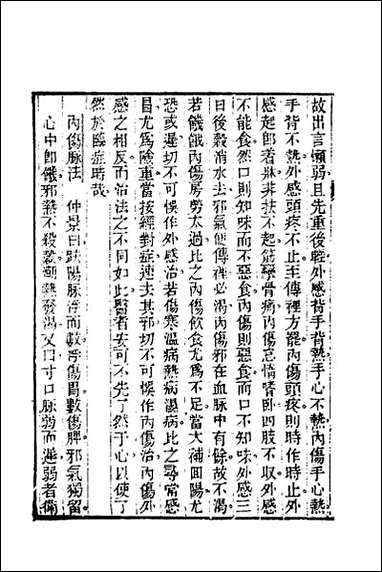 故出言懶弱且先重後輕外感背手背熱手心不熱內傷手心熱
手背不熱外感頭疼不止至傳裡方罷內傷頭疼則時作時止外
感起即着牀非扶不起筋攣骨痛內傷怠惰嗜卧四肢不收外感
不能食然口則知味而不惡食內傷則惡食而口不知味外感三
日後穀消水去邪氣傳裡必渴內傷邪在血脉中有餘故不渴
若饑餓內傷房勞太過比之內傷飲食尤爲不足當大補回陽尤
恐或遲切不可悞作外感治若傷寒溫病熱病濕病比之尋常感
冒尤爲險重當按經對症速去其邪切不可悞作內傷治內傷外
感之相反而治法之不同如此醫者安可不先了然于心以使了
然於臨症時哉
內傷脉法 仲景曰趺陽脉浮而數浮傷胃數傷脾邪氣獨留
心中即饑邪熱不殺穀潮熱發渴又曰寸口脉弱而遲弱者傷